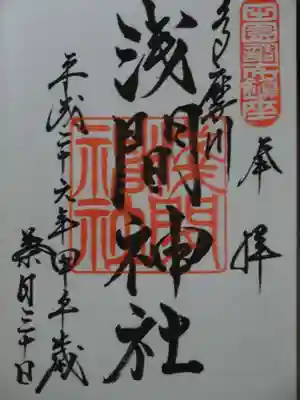 田園調布鎮座
奉拝
多摩川
浅間神社
浅間神社
平成二十六年甲午歳
葉月三十日